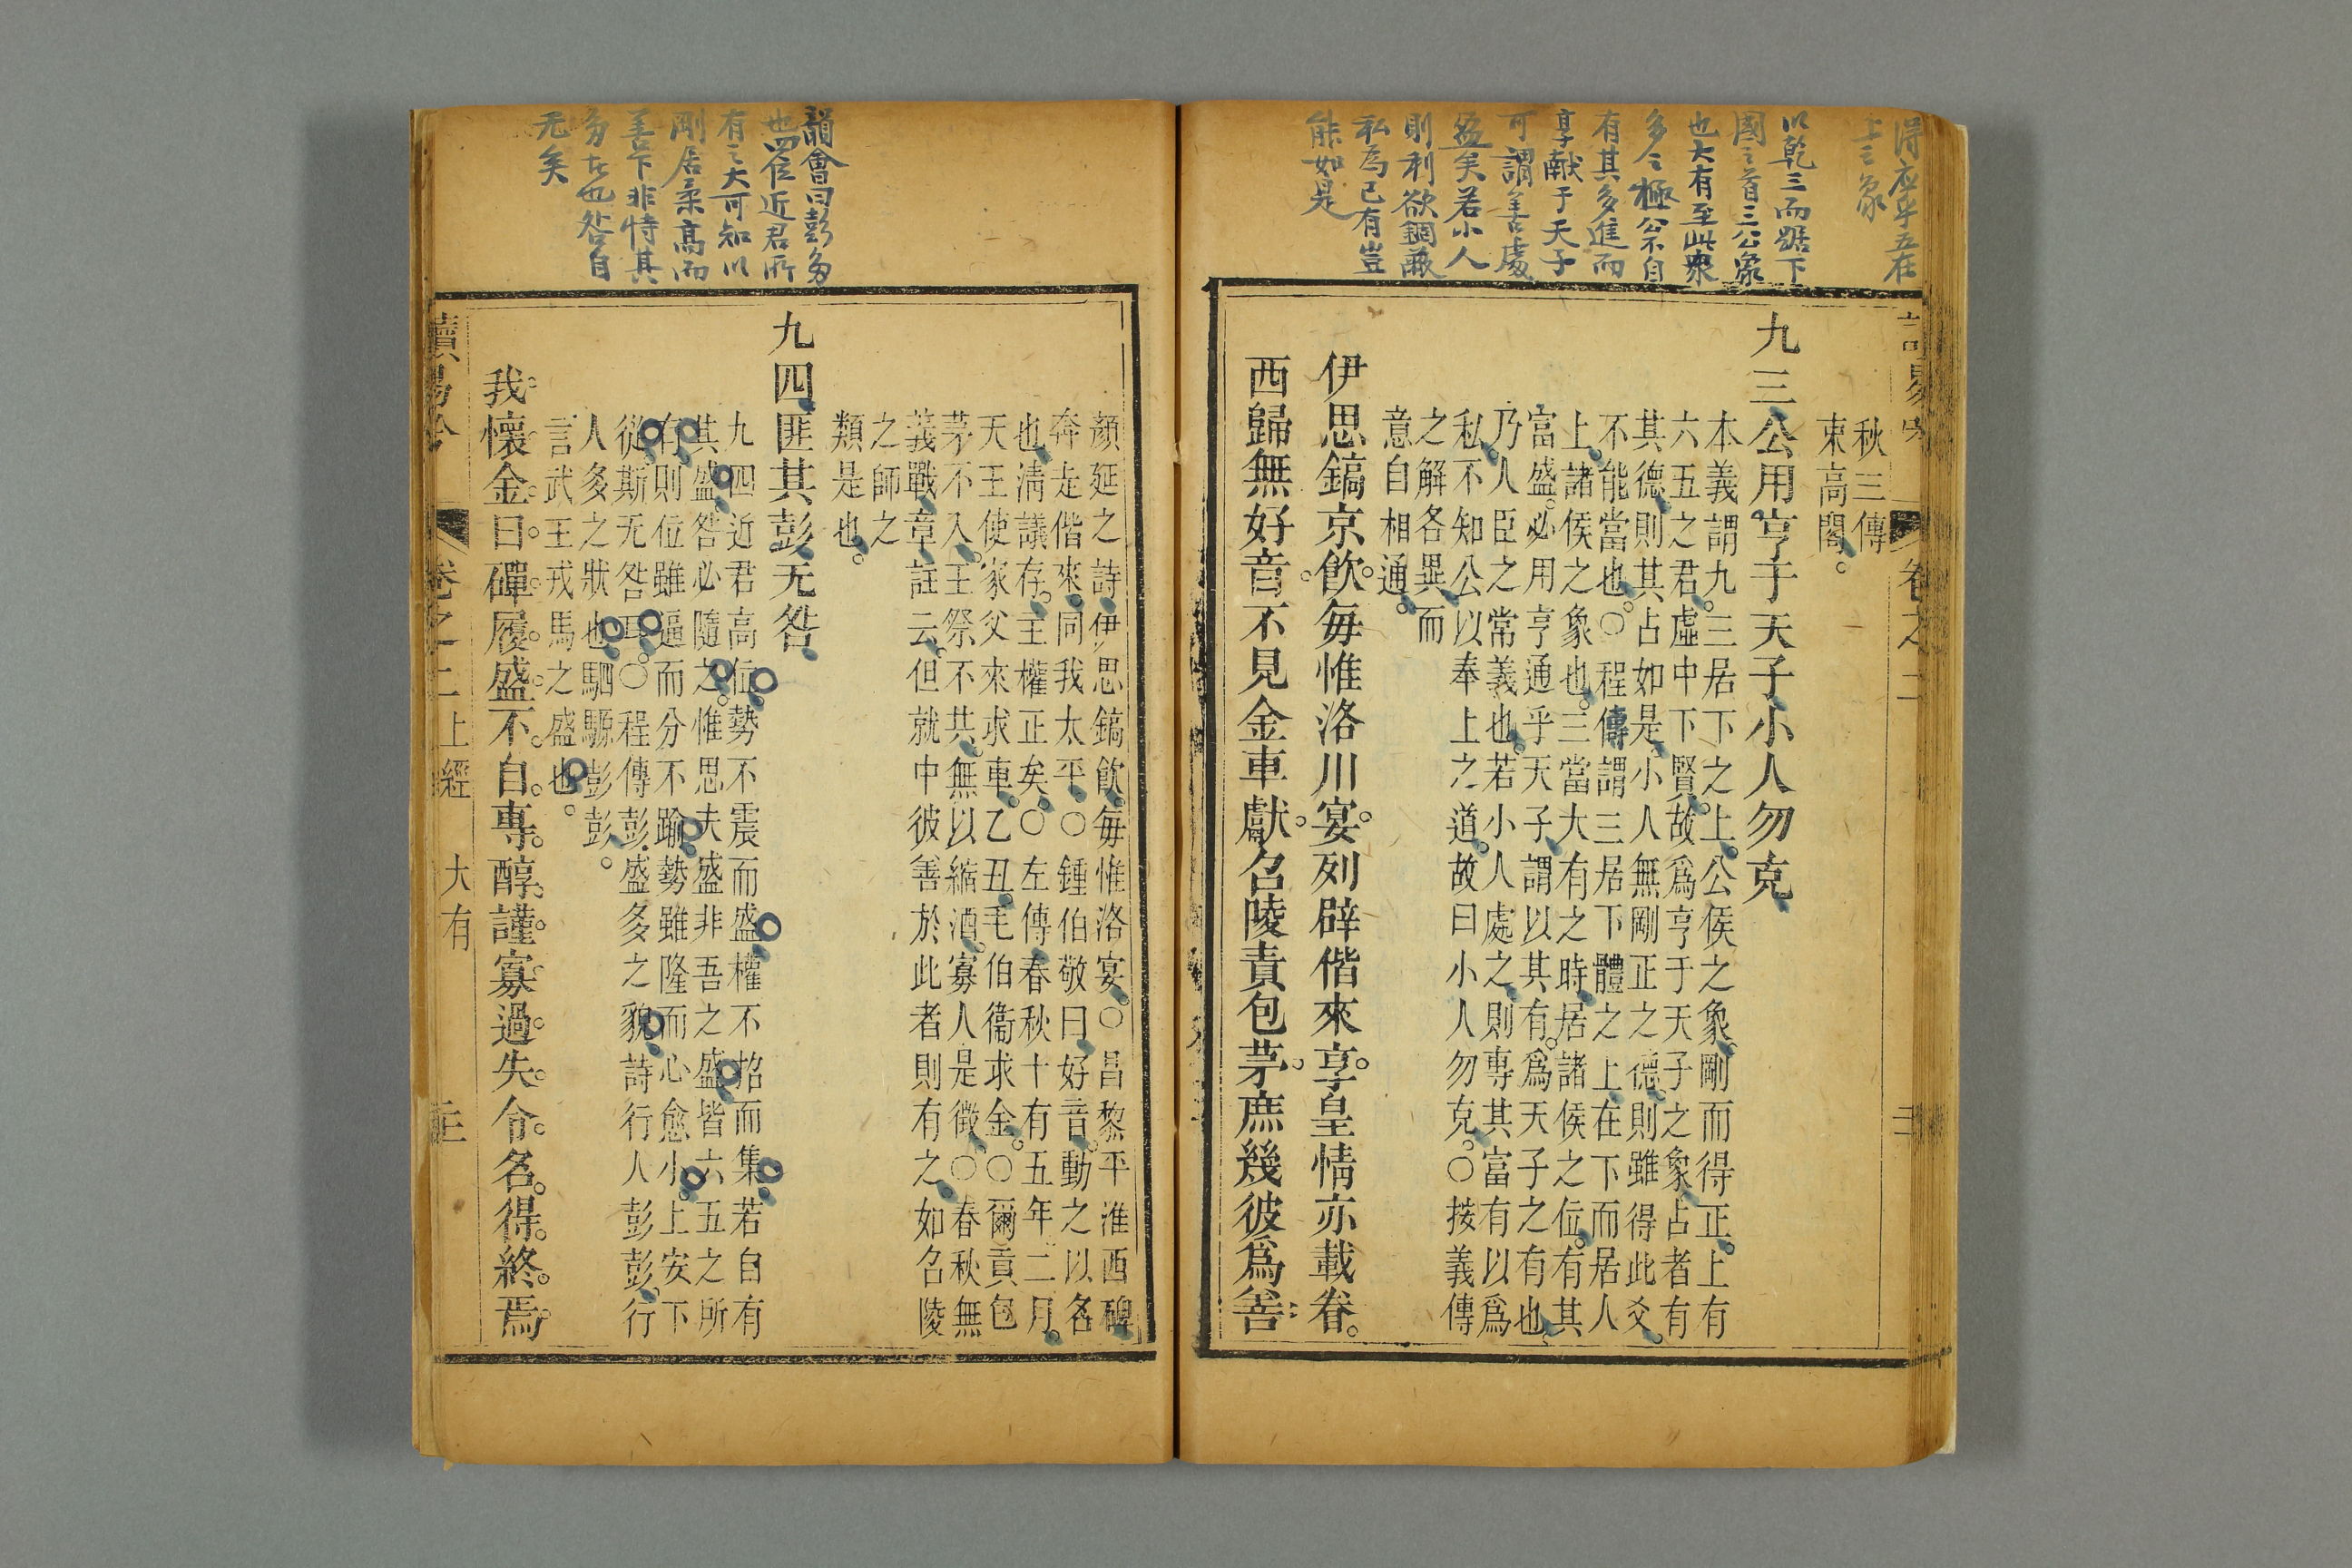 得應乎五在
上之象
以乾三而踞下
國之首三公象
也大有至此衆
多之極公不自
有其多進而
享献于天子
可謂善處
盈矣若小人
則利欲錮蔽
私為已有豈
能如是
卷之二
秋三傳
束高閣。
九三公用亨于天子小人勿克
本義謂九三居下之上。公侯之象。剛而得正。上有
六五之君。虛中下賢。故爲亨于天子之象。占者有
其德。則其占如是。小人無剛正之德。則雖得此爻。
不能當也。○程傳謂三居下體之上。在下而居人
上。諸侯之象也。三當大有之時。居諸侯之位。有其
富盛。必用亨通乎天子。謂以其有。爲天子之有也
乃人臣之常義也。若小人處之。則專其富有以爲
私。不知公以奉上之道。故曰小人勿克。○按義傳
之解各異而
意自相通。
伊思鎬京飲。每惟洛川宴。列辟偕來享。皇情亦載眷。
西歸無好音。不見金車獻。召陵責包茅。庶幾彼爲善
韻會曰彭多
也四位近君所
有之大可知以
剛居柔高而
善下非恃其
多者也咎自
无矣
顏延之詩。伊思鎬飲。每惟洛宴。○昌黎平淮西碑
奔走偕來。同我太平。○鍾伯敬曰。好音。動之以名
也。清議存。主權正矣。○左傳。春秋十有五年二月。
天王使家父來求車。乙丑。毛伯衞求金。○爾貢包
茅不入。王祭不共。無以縮酒。寡人是徵。○春秋無
義戰章。註云。但就中彼善於此者則有之。如召陵
之師之
類是也。
九四匪其彭无咎
九四近君高位。勢不震而盛。權不招而集。若自有
其盛。咎必隨之。惟思夫盛非吾之盛。皆六五之所
有。則位雖逼而分不踰。勢雖隆而心愈小。上安下
從。斯无咎耳。○程傳彭。盛多之貌。詩行人彭彭。行
人多之狀也。駟騵彭彭。
言武王戎馬之盛也。
我懷金日磾。履盛不自專。醇謹寡過失。令名得終焉
讀易
卷之二 上經 大有